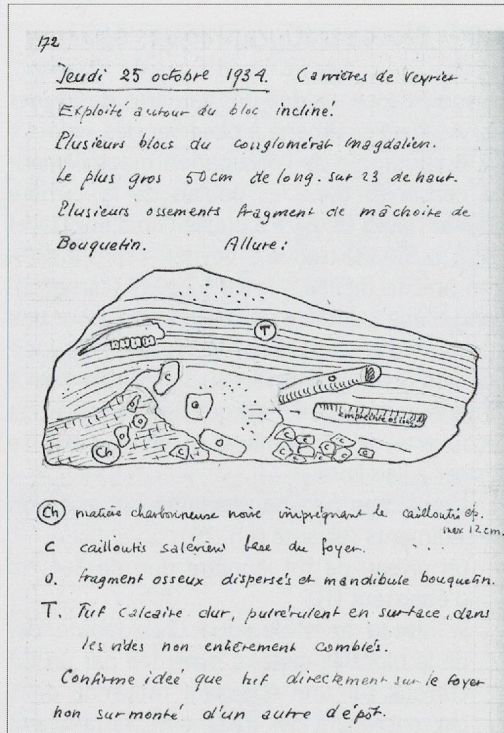 172
Jeudi 25 octobre 1934. Carrières de Veyrier
Exploité autour du bloc incliné.
Plusieurs blocs du conglomérat magdalien.
Le plus gros 50cm de long. sur 23 de haut.
Plusieurs ossements fragment de mâchoire de
Bouquetin. Allure:
T
c
o
o
empreinte
o
o
o
o
Ch
c c c c c c c c
Ch matière charbonneuse noire imprégnant le cailloutis ép.
max 12 cm.
C cailloutis salévien base du foyer. ...
O. fragment osseux dispersés et mandibule bouquetin.
T. Tuf calcaire dur, pulvérulent en surface, dans
les vides non entièrement comblés.
Confirme ideé que tuf directement sur le foyer
non surmonté d'un autre dépôt.